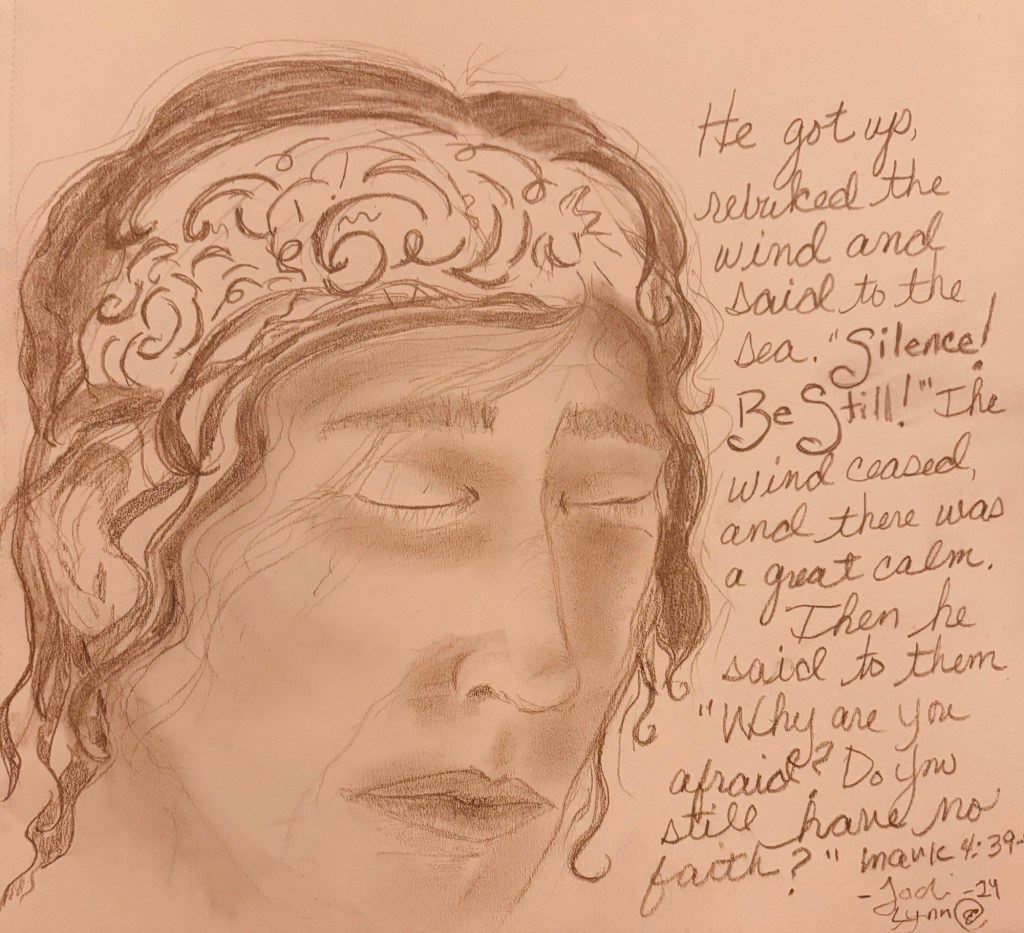 He got up,
rebuked the
wind and
said to the
sea. "Silence!
Be Still!" The
wind ceased,
and there was
a great calm.
Then he
said to them
"Why are you
afraid? Do you
still have no
faith?" mark 4:39-
-Jodi -24
Lynn